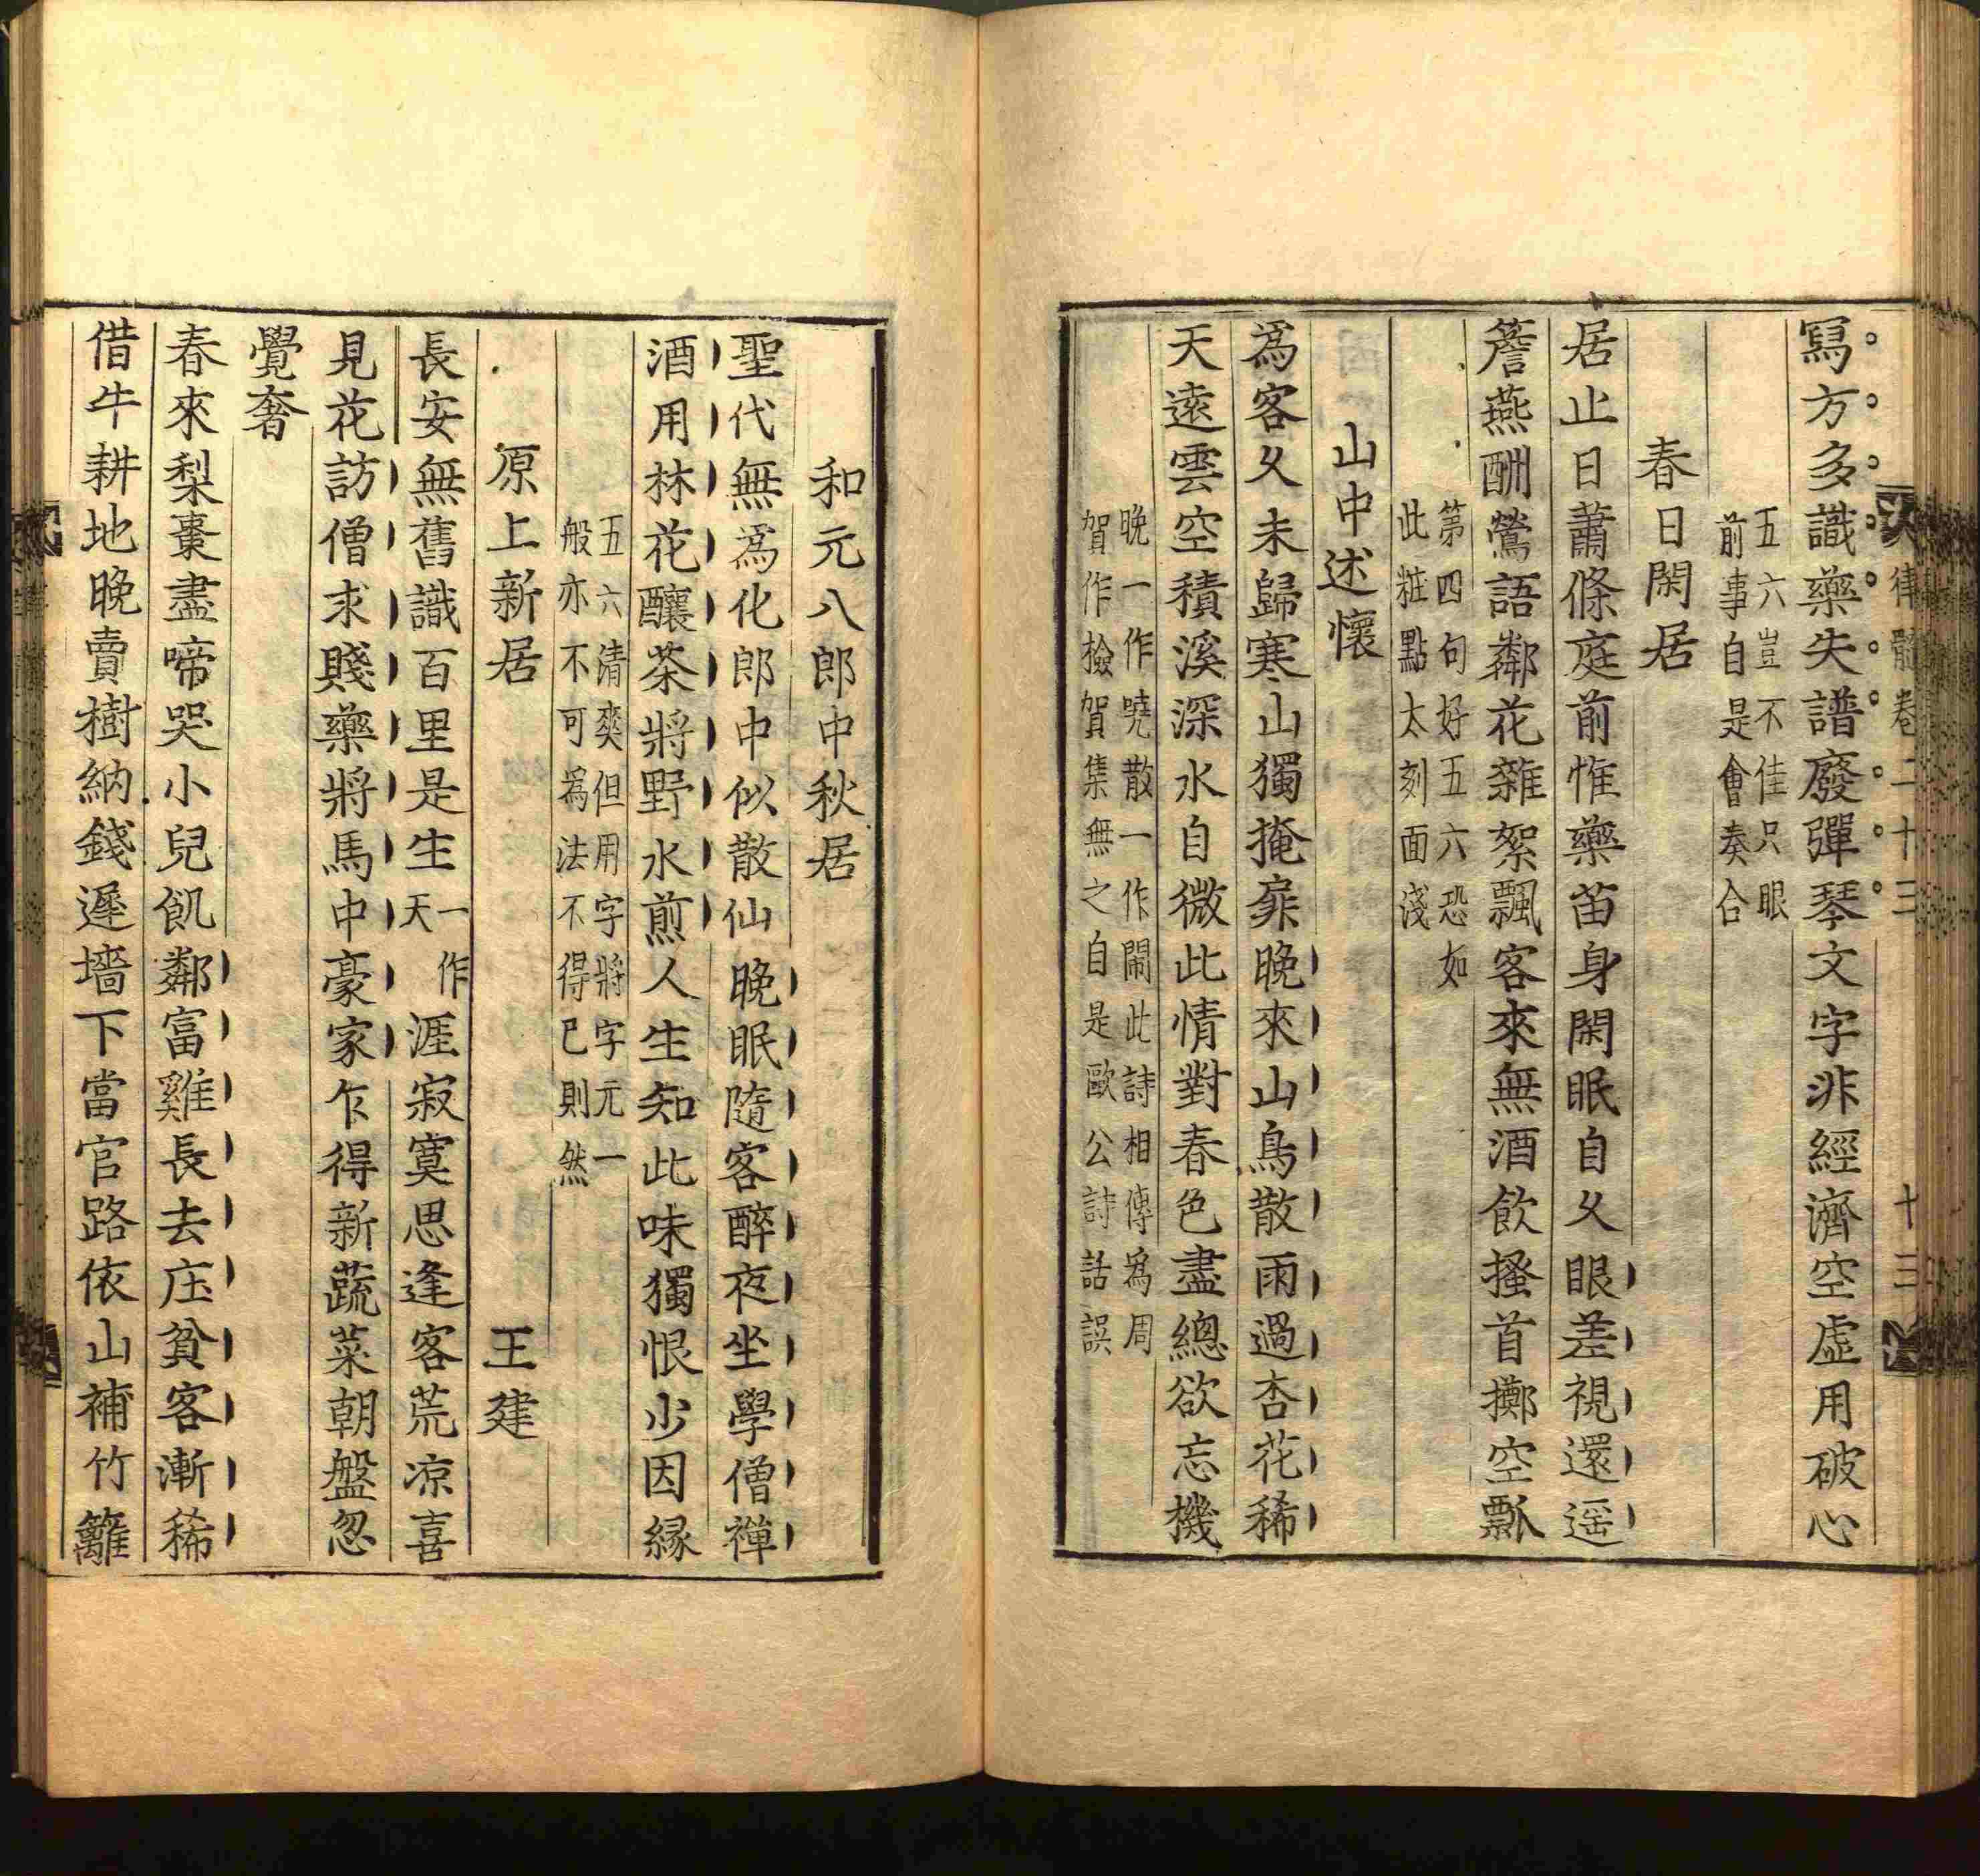 律髓卷二十三 十三
寫方多識藥失譜廢彈琴文字非經濟空虛用破心
五六豈不佳只眼
前事自是會奏合
春日閑居
居止日蕭條庭前惟藥苗身閑眠自久眼差視還遥
簷燕酬鶯語鄰花雜絮飄客來無酒飲搔首擲空瓢
第四句好五六恐如
此粧點太刻面淺
山中述懷
爲客久未歸寒山獨掩扉晚來山鳥散雨過杏花稀
天遠雲空積溪深水自微此情對春色盡總欲忘機
晚一作曉散一作閙此詩相傳爲周
賀作撿賀集無之自是歐公詩話誤
和元八郎中秋居
聖代無爲化郎中似散仙晚眠隨客醉夜坐學僧禪
酒用林花釀茶將野水煎人生知此味獨恨少因緣
五六清爽但用字將字元一
般亦不可爲法不得已則然
原上新居 王建
長安無舊識百里是生一作天涯寂寞思逢客荒凉喜
見花訪僧求賤藥將馬中豪家乍得新蔬菜朝盤忽
覺奢
春來梨棗盡啼哭小兒飢鄰富雞長去庄貧客漸稀
借牛耕地晚賣樹納錢遲墻下當官路依山補竹籬